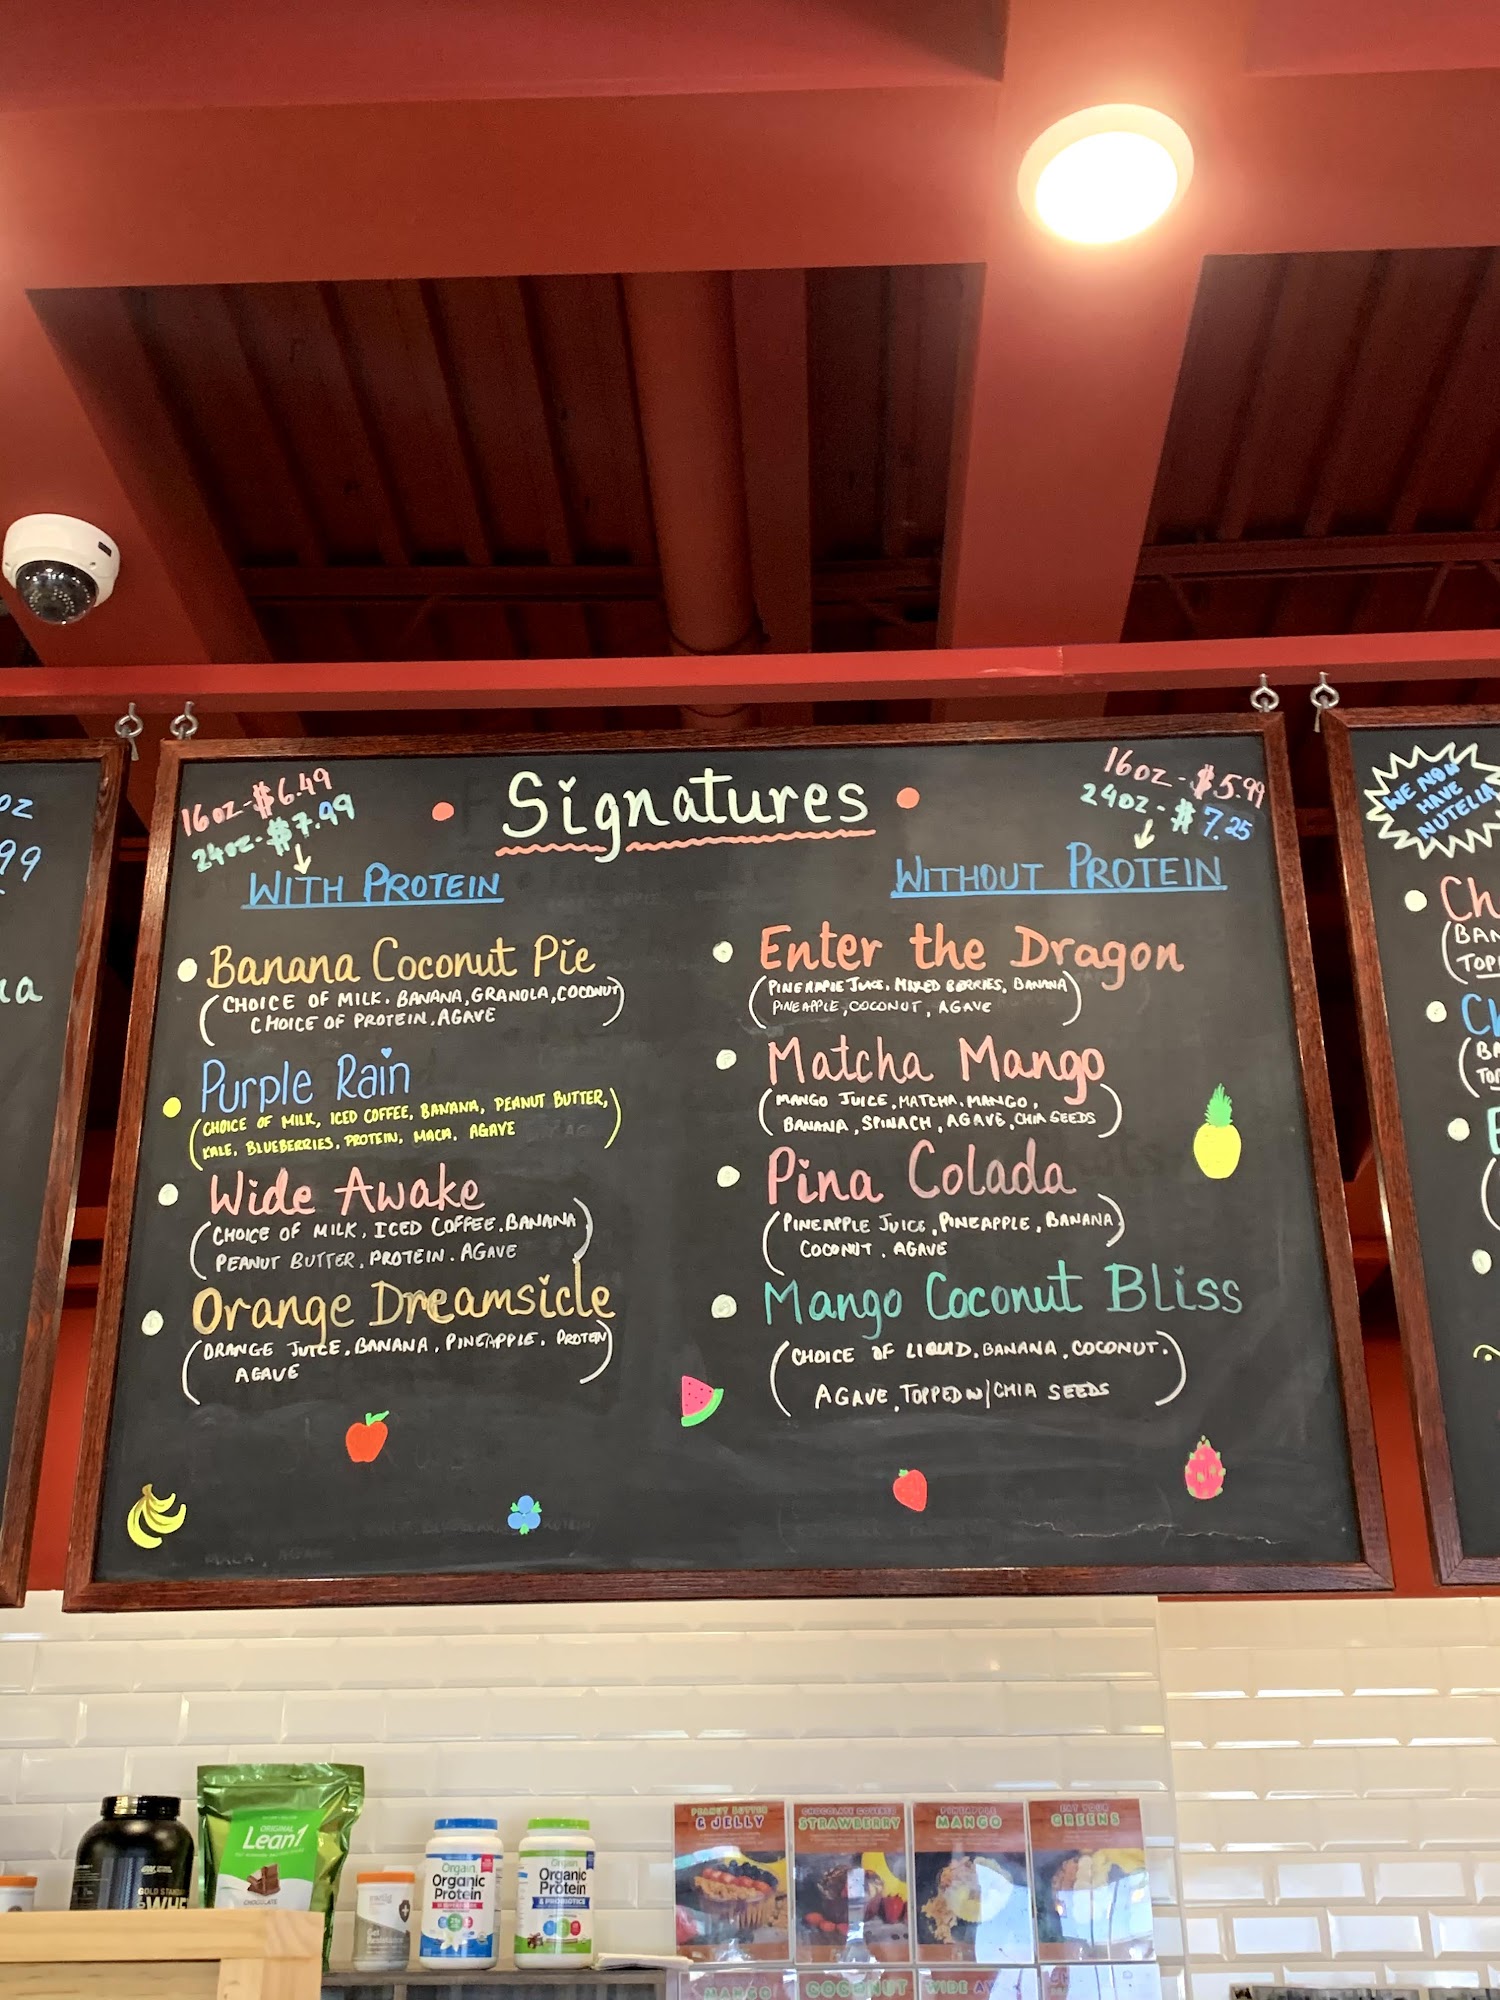 Signatures
16oz-$6.49
24oz-$7.99
WITH PROTEIN
Banana Coconut Pie
(CHOICE OF MILK, BANANA, GRANOLA, COCONUT
CHOICE OF PROTEIN, AGAVE)
Purple Rain
(CHOICE OF MILK, ICED COFFEE, BANANA, PEANUT BUTTER,
KALE, BLUEBERRIES, PROTEIN, MACA, AGAVE)
Wide Awake
(CHOICE OF MILK, ICED COFFEE, BANANA
PEANUT BUTTER, PROTEIN, AGAVE)
Orange Dreamsicle
(ORANGE JUICE, BANANA, PINEAPPLE, PROTEIN
AGAVE)
16oz-$5.99
24oz-$7.25
WITHOUT PROTEIN
Enter the Dragon
(PINEAPPLE JUICE, MIXED BERRIES, BANANA
PINEAPPLE, COCONUT, AGAVE)
Matcha Mango
(MANGO JUICE, MATCHA, MANGO,
BANANA, SPINACH, AGAVE, CHIA SEEDS)
Pina Colada
(PINEAPPLE JUICE, PINEAPPLE, BANANA
COCONUT, AGAVE)
Mango Coconut Bliss
(CHOICE OF LIQUID, BANANA, COCONUT.
AGAVE, TOPPED W/ CHIA SEEDS)
WE NOW
HAVE
NUTELLA
oz
99
Ch
(BAN
TOP
GOLD STAND
WHE
ORIGINAL
Lean1
CHOCOLATE
Orgain
Organic
Protein
Orgain
Organic
Protein
PEANUT BUTTER
& JELLY
CHOCOLATE COVERED
STRAWBERRY
PINEAPPLE
MANGO
EAT YOUR
GREENS
MANGO
COCONUT
WIDE AW